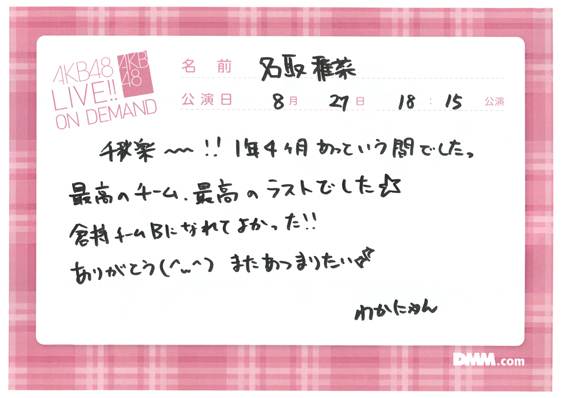 AKB48
LIVE!!
ON DEMAND
AKB
48
名前 名取稚菜
公演日 8月 27日 18:15 公演
千秋楽〜〜!! 1年4ヶ月あっという間でしたっ
最高のチーム、最高のラストでした☆
倉持チームBになれてよかった!!
ありがとう(^ω^) またあつまりたい☆
わかにゃん
DMM.com